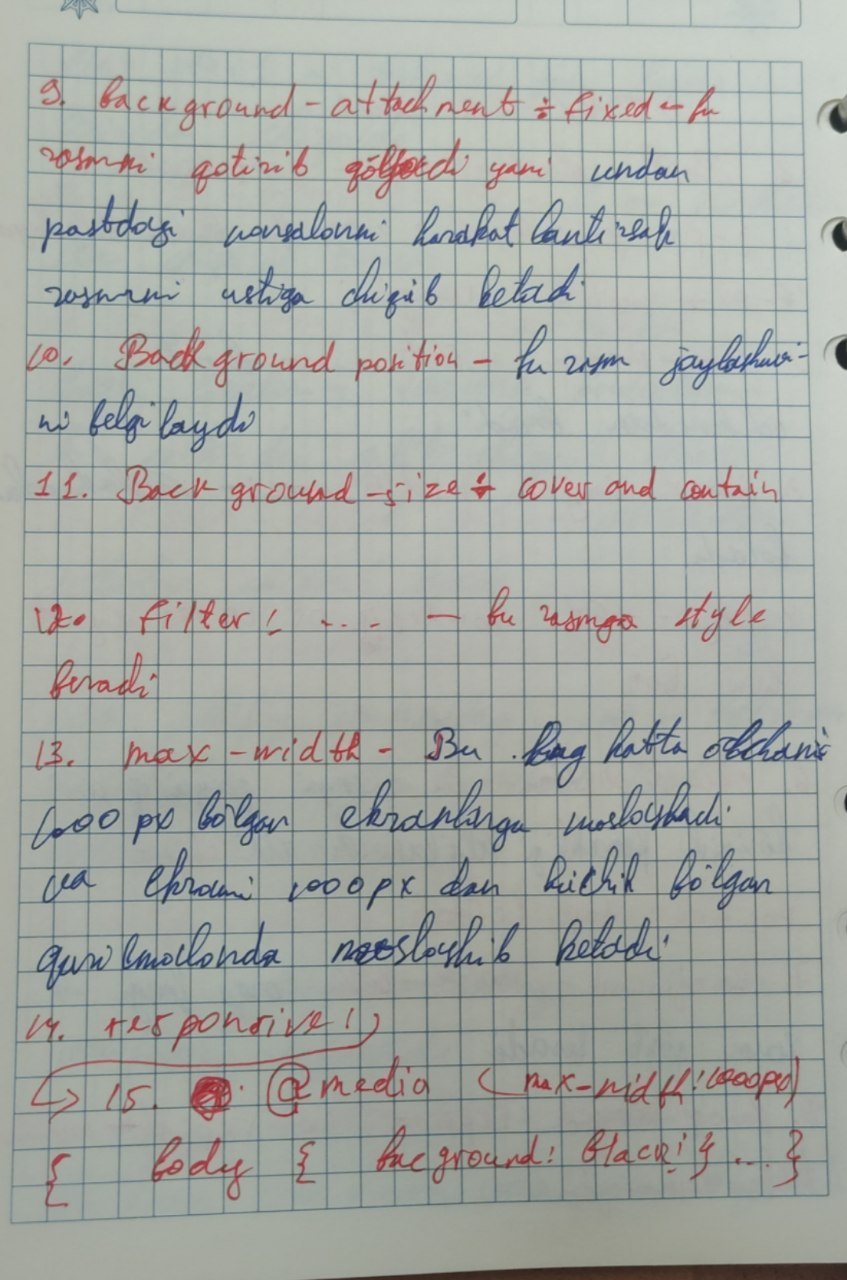 9. background - attachment : fixed - bu
rasmni qotirib qo'yadi yani undan
pastdagi narsalarni harakatlantirsak
rasmni ustiga chiqib ketadi
10. Background position - bu rasm joylashuvi-
ni belgilaydi
11. Background - size : cover and contain
12. filter : .... - bu rasmga style
beradi
13. max - width - Bu eng katta o'lchami
1000 px bo'lgan ekranlarga moslashadi
va ekrani 1000px dan kichik bo'lgan
qurilmalarda moslashib ketadi
14. responsive!)
15. @media (max-width: 1000px)
{ body { bacground: black; } ... }